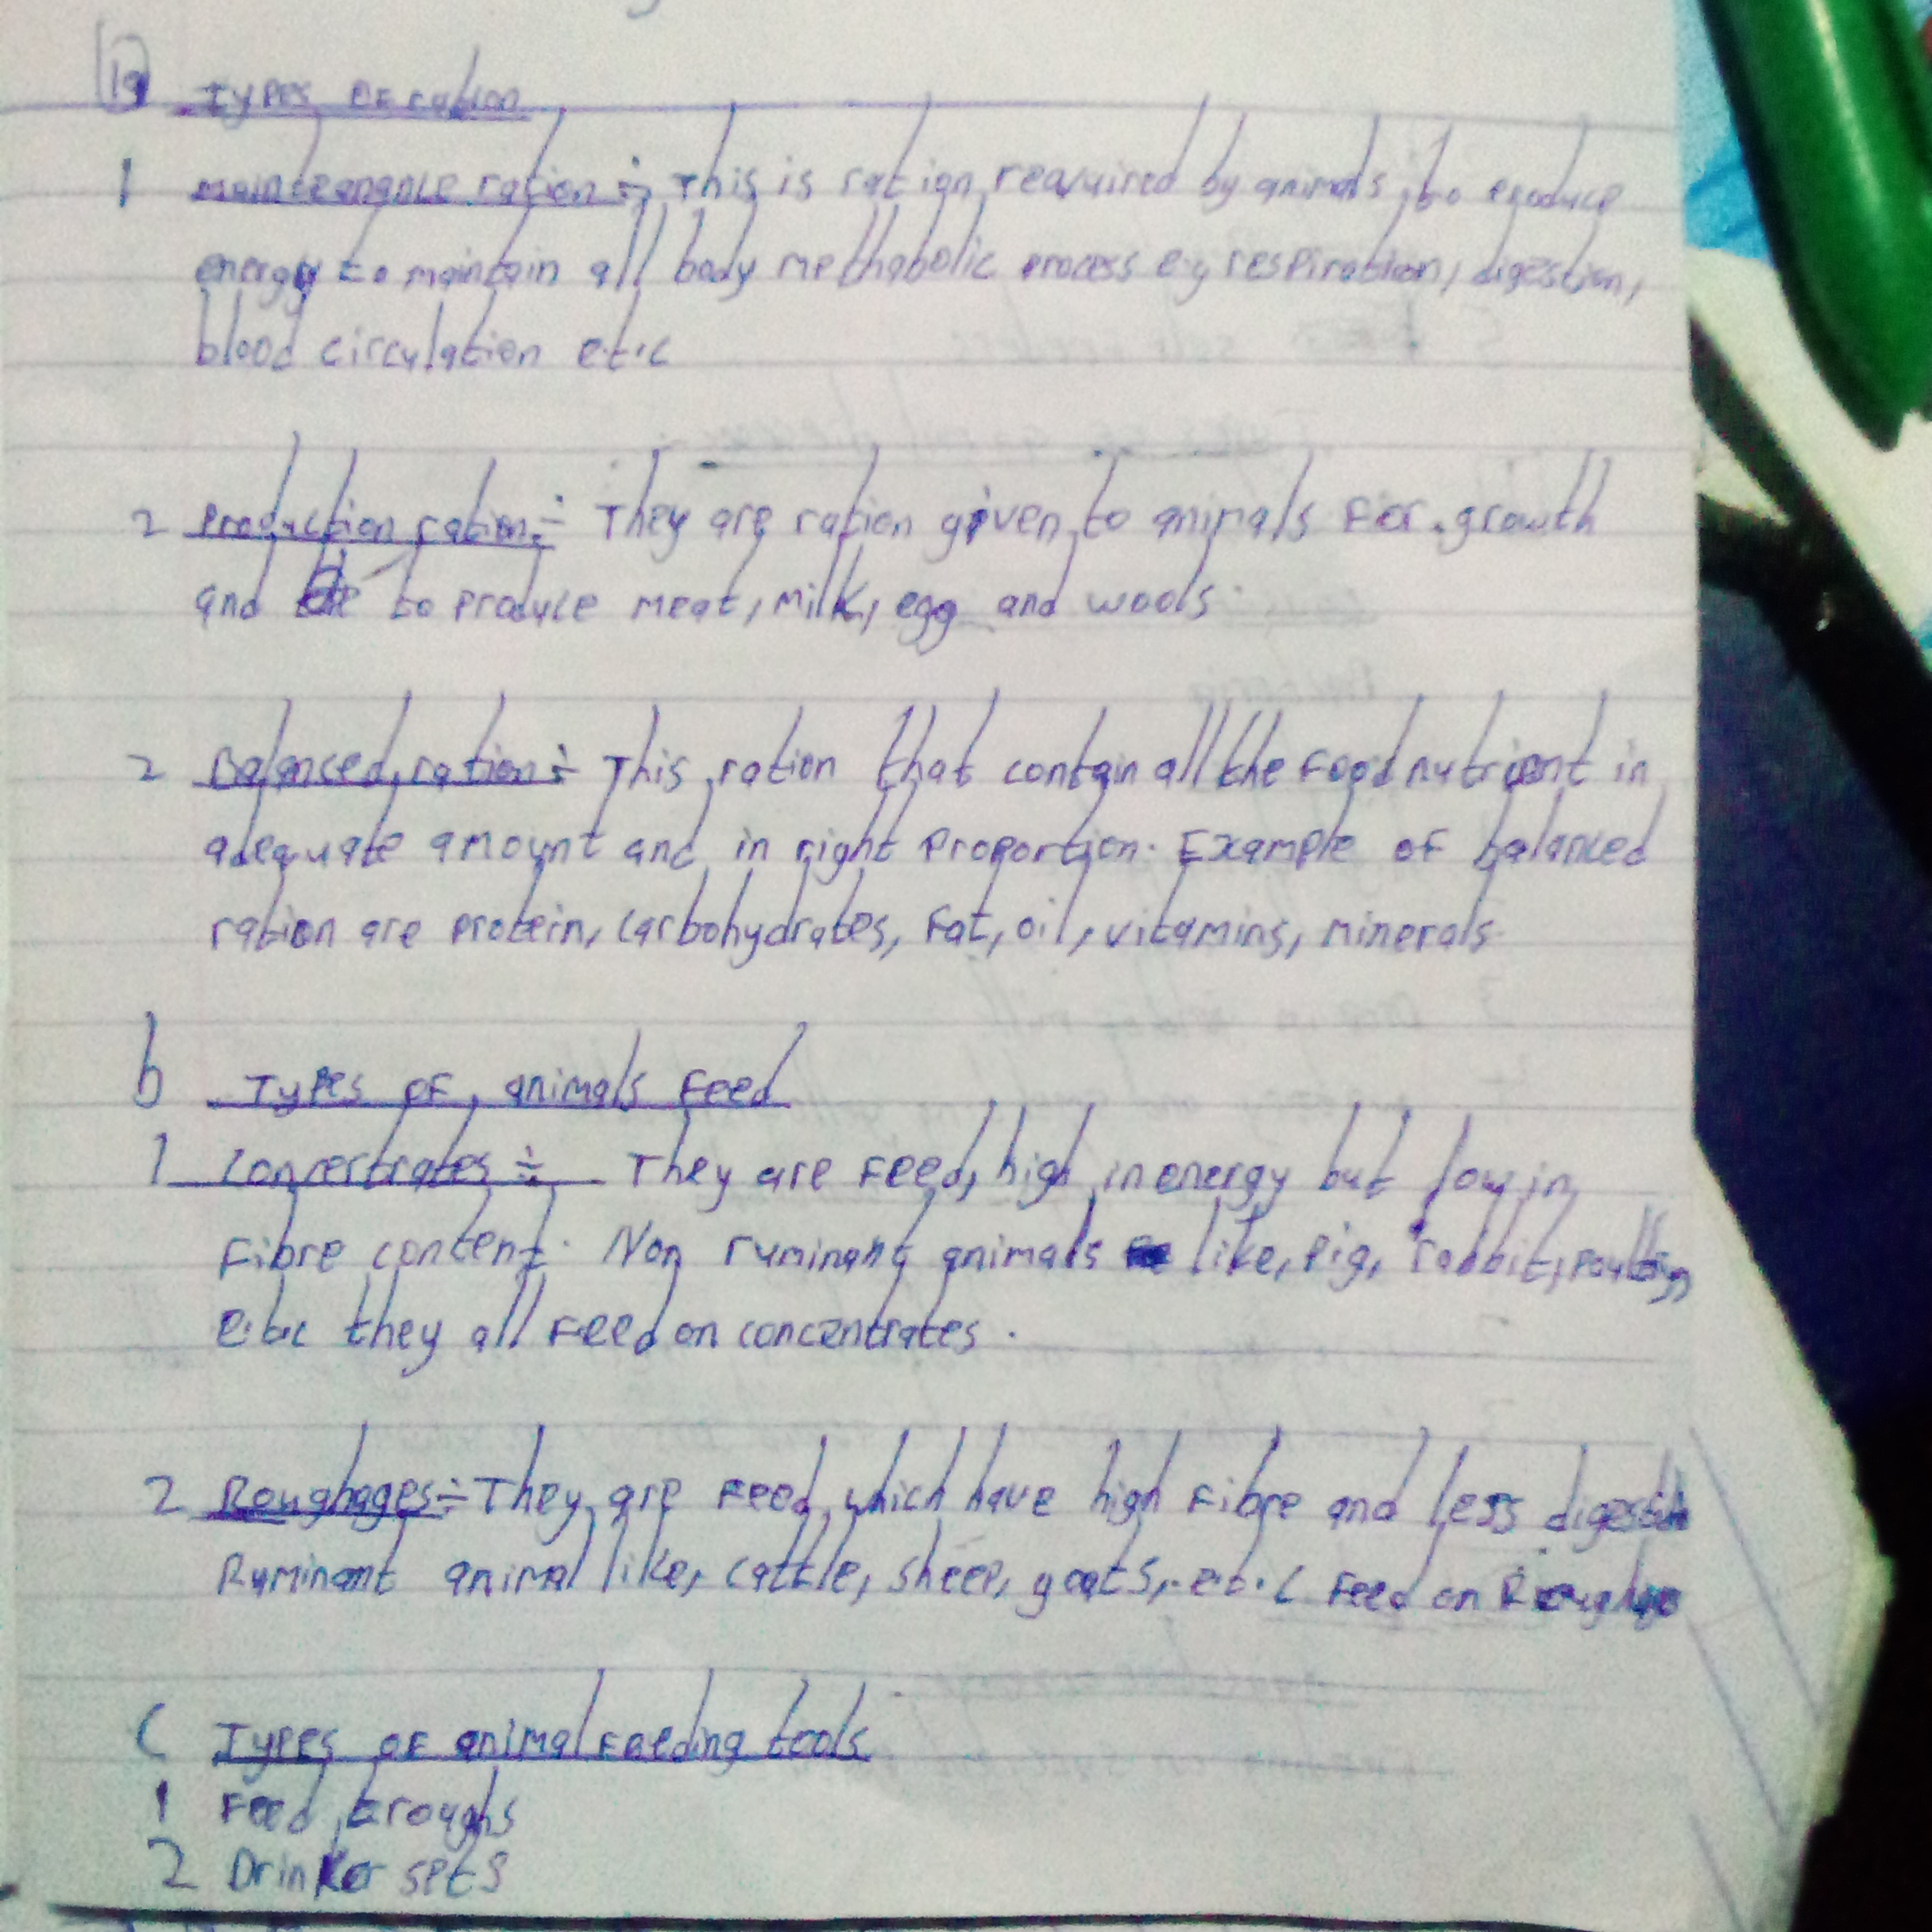 1a Types OF ration
1 mainteanance ration ÷ This is ration reavuired by animals, to produce
energy to maintain all body methabolic process e.g respiration, digestion,
blood circulation e.t.c
2 production ration ÷ They are ration given to animals For growth
and to produce meat, milk, egg and wools.
2 Balansed ration ÷ This ration that contain all the Food nutrient in
adequate amount and in right proportion. Example of balanced
ration are protein, carbohydrates, Fat, oil, vitamins, minerals.
b Types OF animals Feed
1 Concertrates ÷ They are Feed, high in energy but low in
Fibre content. Non ruminant animals like, pig, rabbit, poultry,
e.t.c they all Feed on concentrates.
2 Roughages ÷ They are Feed which have high Fibre and less
Ruminant animal like, cattle, sheep, goats, e.t.c Feed on
C Types OF animal Feeding tools
1 Feed troughs
2 Drinker sets